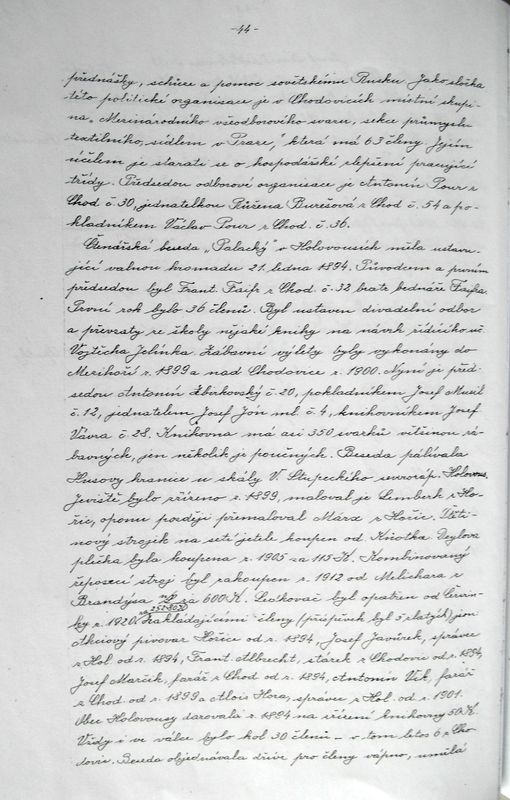 -44-
přednášky, schůze a pomoc sovětskému Rusku. Jako složka
této politické organisace je v Chodovicích místní skupi-
na „Mezinárodního všeodborového svazu, sekce průmyslu
textilního, sídlem v Praze," která má 63 členy. Jejím
účelem je starati se o hospodářské zlepšení pracující
třídy. Předsedou odborové organisace je Antonín Pour z
Chod č. 30, jednatelkou Růžena Burešová z Chod č. 54 a po-
kladníkem Václav Pour z Chod. č. 36.
Čtenářská beseda „Palacký" v Holovousích měla ustavu-
jící valnou hromadu 21. ledna 1894. Původcem a prvním
předsedou byl Frant. Fajfr z Chod. č. 32 bratr bednáře Fajfra.
První rok bylo 36 členů. Byl ustaven divadelní odbor
a převzaty ze školy nějaké knihy na návrh řídícího uč.
Vojtěcha Jelínka. Zábavní výlety byly vykonány do
Mezihoří r. 1899 a nad Chodovice r. 1900. Nyní je před-
sedou Antonín Zbirkovský č. 20, pokladníkem Josef Musil
č. 12, jednatelem Josef Jón ml. č. 4, knihovníkem Josef
Vávra č. 28. Knihovna má asi 350 svazků většinou zá-
bavných, jen několik je poučných. Beseda pálívala
Husovy hranice u skály V. Stupeckého severozáp. Holovous.
Jeviště bylo zřízeno r. 1899, maloval je Lemberk z Ho-
řic, oponu později přemaloval Márx z Hořic. Štěti-
nový strojek na setí jetele koupen od Knotka. Deylova
plečka byla koupena r. 1905 za 115 K. Kombinovaný
řeposecí stroj byl zakoupen r. 1912 od Melichara z
Brandýsa n/L za 600 K. Lískovač byl opatřen od
ky r. 1920 za 2514·80 K. Zakládajícími členy (příspěvek byl 5 zlatých) jsou
Akciový pivovar Hořice od r. 1894, Josef Javůrek, správce
z Hol. od r. 1894, Frant. Albrecht, stárek z Chodovic od r. 1894,
Josef Marčík, farář z Chod od r. 1894, Antonín Vik, farář
z Chod. od r. 1899 a Alois Hora, správce z Hol. od r. 1901.
Obec Holovousy darovala r. 1894 na zřízení knihovny 50 K.
Vždy i ve válce bylo kol 30 členů – v tom letos 6 z Cho-
dovic. Beseda objednávala dříve pro členy vápno, umělá